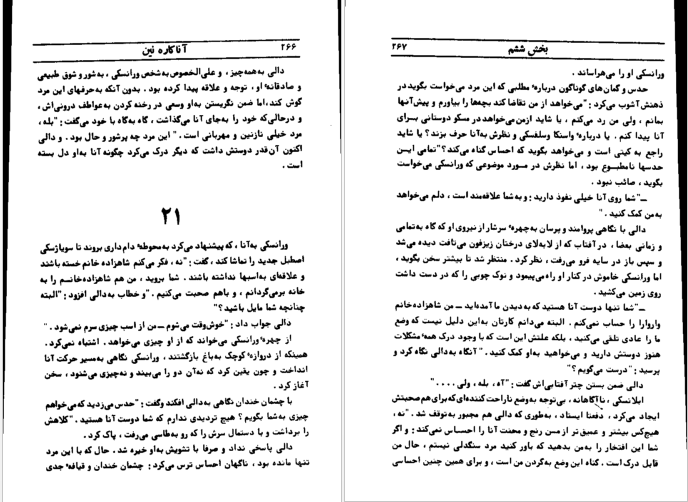 آناکاره نین ۲۶۶
دالی به‌همه‌چیز، و علی‌الخصوص به‌شخص ورانسکی، به‌شور و شوق طبیعی
و صادقانهٔ او، توجه و علاقه پیدا کرده بود. بدون آنکه به‌حرفهای این مرد
گوش کند، اما ضمن نگریستن به‌او وسعی در رخنه کردن به‌عواطف درونی‌اش،
و درحالی‌که خود را به‌جای آنا می‌گذاشت، گاه به‌گاه با خود می‌گفت: "بله،
مرد خیلی نازنین و مهربانی است." این مرد چه پرشور و حال بود. و دالی
اکنون آن‌قدر دوستش داشت که دیگر درک می‌کرد چگونه آنا به‌او دل بسته
است.
۲۱
ورانسکی به‌آنا، که پیشنهاد می‌کرد به‌محوطهٔ دام‌داری بروند تا سویاژسکی
اصطبل جدید را تماشا کند، گفت: "نه، فکر می‌کنم شاهزاده خانم خسته باشند
و علاقه‌ای به‌اسبها نداشته باشند. شما بروید، من هم شاهزاده‌خانم را به
خانه برمی‌گردانم، و باهم صحبت می‌کنیم." و خطاب به‌دالی افزود: "البته
چنانچه شما مایل باشید؟"
دالی جواب داد: "خوش‌وقت می‌شوم ــ من از اسب چیزی سرم نمی‌شود."
از چهرهٔ ورانسکی می‌خواند که از او چیزی می‌خواهد. اشتباه نمی‌کرد.
همینکه از دروازهٔ کوچک به‌باغ بازگشتند، ورانسکی نگاهی به‌مسیر حرکت آنا
انداخت و چون یقین کرد که نه‌آن دو را می‌بیند و نه‌چیزی می‌شنود، سخن
آغاز کرد.
با چشمان خندان نگاهی به‌دالی افکند وگفت: "حدس می‌زدید که‌می‌خواهم
چیزی به‌شما بگویم؟ هیچ تردیدی ندارم که شما دوست آنا هستید." کلاهش
را برداشت و با دستمال سرش را که رو به‌طاسی می‌رفت، پاک کرد.
دالی پاسخی نداد و صرفا با تشویش به‌او خیره شد. حال که با این مرد
تنها مانده بود، ناگهان احساس ترس می‌کرد: چشمان خندان و قیافهٔ جدی
بخش ششم ۲۶۷
ورانسکی او را می‌هراساند.
حدس و گمان‌های گوناگون دربارهٔ مطلبی که این مرد می‌خواست بگوید در
ذهنش آشوب می‌کرد: "می‌خواهد از من تقاضا کند بچه‌ها را بیاورم و پیش‌آنها
بمانم، ولی من رد می‌کنم، یا شاید ازمن می‌خواهد در مسکو دوستانی برای
آنا پیدا کنم. یا دربارهٔ واسنکا وسلفسکی و نظرش به‌آنا حرف بزند؟ یا شاید
راجع به کیتی است و می‌خواهد بگوید که احساس گناه می‌کند؟" تمامی ایـن
حدسها نامطبوع بود، اما نظرش در مورد موضوعی که ورانسکی می‌خواست
بگوید، صائب نبود.
ــ "شما روی آنا خیلی نفوذ دارید: و به‌شما علاقه‌مند است، دلم می‌خواهد
به‌من کمک کنید."
دالی با نگاهی پروامند و پرسان به‌چهرهٔ سرشار از نیروی او که گاه به‌تمامی
و زمانی بعضا، در آفتاب که از لابه‌لای درختان زیزفون می‌تافت دیده می‌شد
و سپس باز در سایه فرو می‌رفت، نظر کرد. منتظر شد تا بیشتر سخن بگوید،
اما ورانسکی خاموش در کنار او راه می‌پیمود و نوک چوبی را که در دست داشت
روی زمین می‌کشید.
ــ "شما تنها دوست آنا هستید که به‌دیدن ما آمده‌اید ــ من شاهزاده‌خانم
واروارا را حساب نمی‌کنم. البته می‌دانم کارتان به‌این دلیل نیست که وضع
ما را عادی تلقی می‌کنید، بلکه علتش این است که با وجود درک همهٔ مشکلات
هنوز دوستش دارید و می‌خواهید به‌او کمک کنید." آنگاه به‌دالی نگاه کرد و
پرسید: "درست می‌گویم؟"
دالی ضمن بستن چتر آفتابی‌اش گفت: "آه، بله، ولی...."
ابلانسکی، ناآگاهانه، بی‌توجه به‌وضع ناراحت کننده‌ای که‌برای هم‌صحبتش
ایجاد می‌کرد، دفعتا ایستاد، به‌طوری که دالی هم مجبور به‌توقف شد. "نه،
هیچ‌کس بیشتر و عمیق‌تر از من رنج و محنت آنا را احساس نمی‌کند: و اگر
شما این افتخار را به‌من بدهید که باور کنید مرد سنگدلی نیستم، حال من
قابل درک است. گناه این وضع به‌گردن من است، و برای همین چنین احساسی